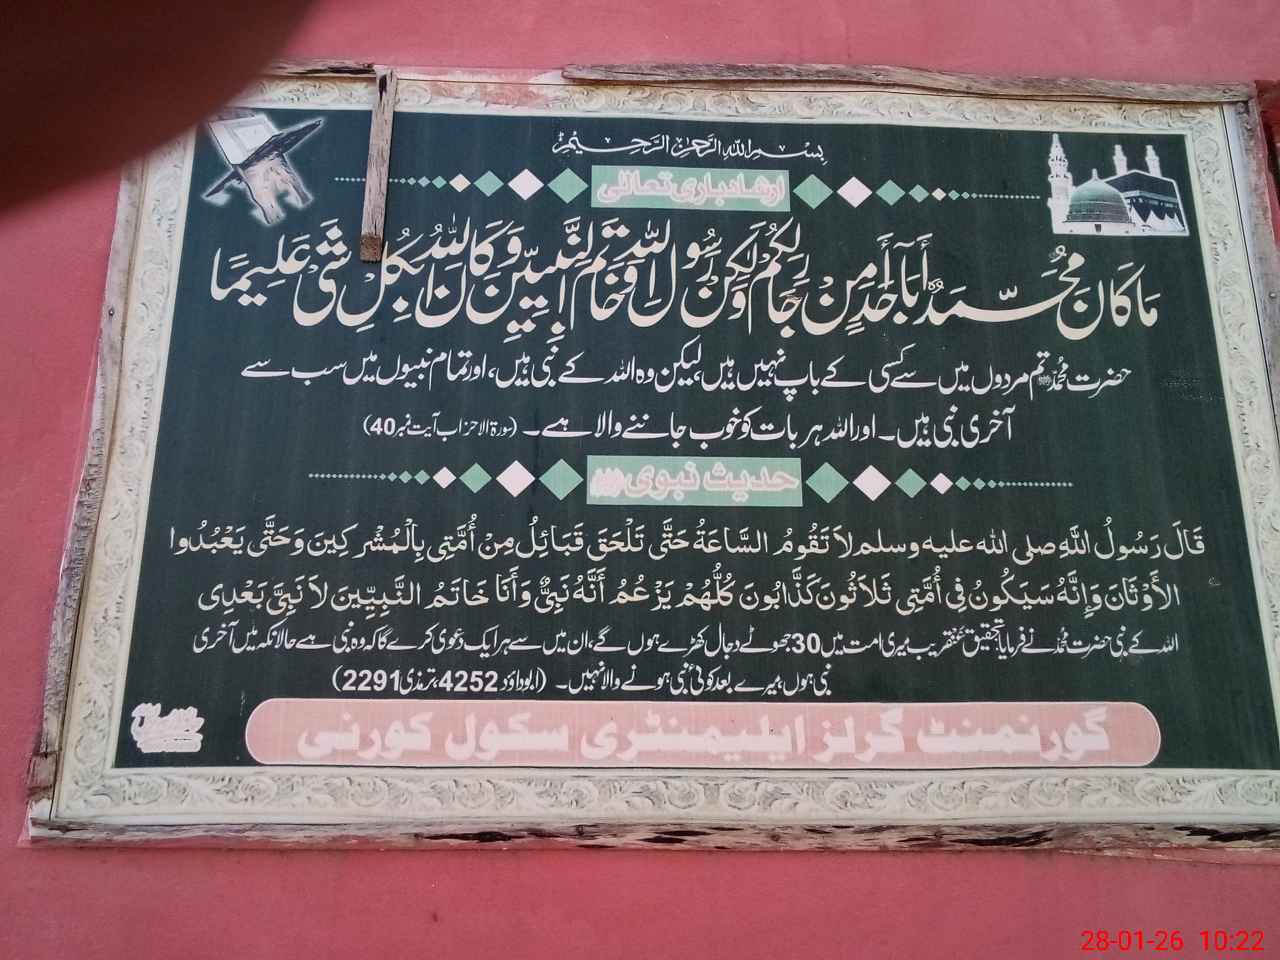 بسم اللہ الرحمن الرحیم
ارشاد باری تعالی
مَا كَانَ مُحَمَّدٌ أَبَا أَحَدٍ مِنْ رِجَالِكُمْ وَلَكِنْ رَسُولَ اللَّهِ وَخَاتَمَ النَّبِيِّينَ وَكَانَ اللَّهُ بِكُلِّ شَيْءٍ عَلِيمًا
حضرت محمد ﷺ تم مردوں میں سے کسی کے باپ نہیں ہیں، لیکن وہ اللہ کے نبی ہیں، اور تمام نبیوں میں سب سے
آخری نبی ہیں۔ اور اللہ ہر بات کو خوب جاننے والا ہے۔ (سورۃ الاحزاب آیت نمبر 40)
حدیث نبوی ﷺ
قَالَ رَسُولُ اللَّهِ صلى الله عليه وسلم لاَ تَقُومُ السَّاعَةُ حَتَّى تَلْحَقَ قَبَائِلُ مِنْ أُمَّتِي بِالْمُشْرِكِينَ وَحَتَّى يَعْبُدُوا
الأَوْثَانَ وَإِنَّهُ سَيَكُونُ فِي أُمَّتِي ثَلاَثُونَ كَذَّابُونَ كُلُّهُمْ يَزْعُمُ أَنَّهُ نَبِيٌّ وَأَنَا خَاتَمُ النَّبِيِّينَ لاَ نَبِيَّ بَعْدِي
اللہ کے نبی حضرت محمد نے فرمایا تحقیق عنقریب میری امت میں 30 جھوٹے دجال کھڑے ہوں گے، ان میں سے ہر ایک دعوی کرے گا کہ وہ نبی ہے حالانکہ میں آخری
نبی ہوں، میرے بعد کوئی نبی ہونے والا نہیں۔ (ابوداؤد 4252، ترمذی 2291)
گورنمنٹ گرلز ایلیمنٹری سکول کورنی
28-01-26 10:22